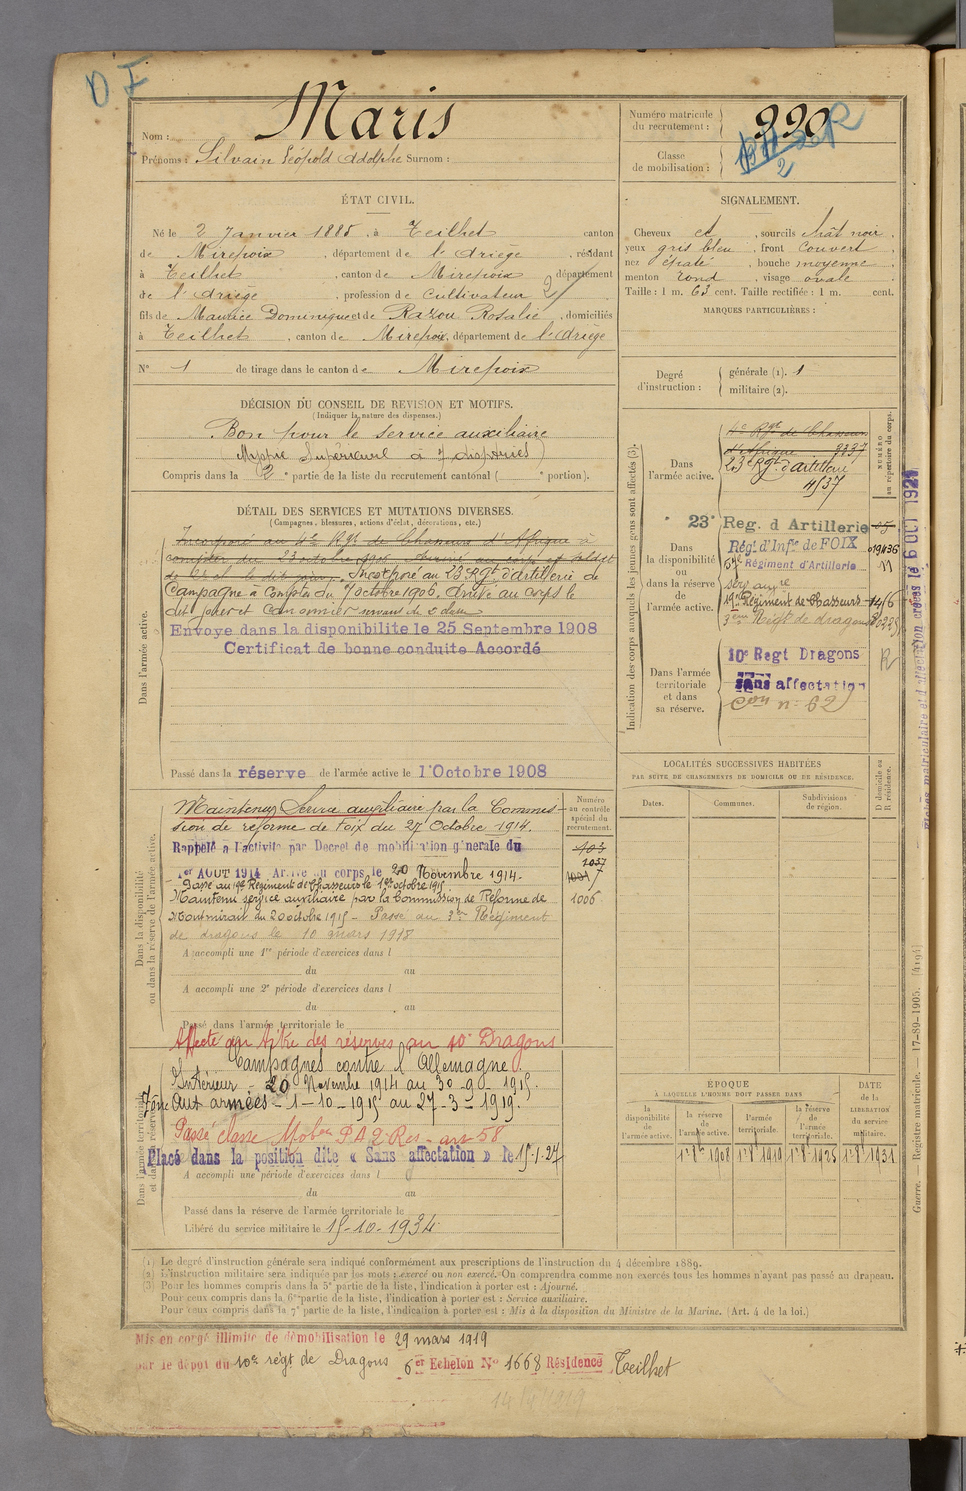 O I
Nom : Maris
Prénoms : Silvain Léopold Adolphe Surnom :
Numéro matricule
du recrutement : 990
Classe
de mobilisation :
2
R
ÉTAT CIVIL.
Né le 2 Janvier 1885, à Teilhet canton
de Mirepoix, département de l'Ariège, résidant
à Teilhet, canton de Mirepoix département
de l'Ariège, profession de Cultivateur 2/
fils de Maurice Dominique et de Razou Rosalie, domiciliés
à Teilhet, canton de Mirepoix, département de l'Ariège
N° 1 de tirage dans le canton de Mirepoix
SIGNALEMENT.
Cheveux et, sourcils chât noir,
yeux gris bleu, front couvert,
nez épaté, bouche moyenne,
menton rond, visage ovale.
Taille : 1 m. 63 cent. Taille rectifiée : 1 m. cent.
MARQUES PARTICULIÈRES :
Degré
d'instruction :
générale (1). 1
militaire (2).
DÉCISION DU CONSEIL DE REVISION ET MOTIFS.
(Indiquer la nature des dispenses.)
Bon pour le service auxiliaire
(Myopie supérieure à 7 dioptries)
Compris dans la 2e partie de la liste du recrutement cantonal ( e portion).
DÉTAIL DES SERVICES ET MUTATIONS DIVERSES.
(Campagnes, blessures, actions d'éclat, décorations, etc.)
Incorporé au 4e Rgt de Chasseurs d'Afrique à
compter du 23 octobre 1906, arrivé au corps et soldat
de 2e cl. le dit jour. Incorporé au 23e Rgt d'artillerie de
Campagne à compter du 7 octobre 1906. Arrivé au corps le
dit jour et canonnier servant de 2e classe
Envoyé dans la disponibilité le 25 Septembre 1908
Certificat de bonne conduite Accordé
Dans l'armée active.
Passé dans la réserve de l'armée active le 1er Octobre 1908
Indication des corps auxquels les jeunes gens sont affectés (3).
NUMÉRO
au répertoire du corps.
Dans
l'armée active.
4e Rgt de Chasseurs
d'Afrique 9337
23e Rgt d'artillerie
4537
Dans
la disponibilité
ou
dans la réserve
de
l'armée active.
23e Reg. d'Artillerie
Régt d'Infie de FOIX 019436
57e Régiment d'Artillerie
serv auxre
19e Régiment de Chasseurs
3ème Régt de dragons
Dans l'armée
territoriale
et dans
sa réserve.
10e Regt Dragons
sans affectation
Con n° 62
R
LOCALITÉS SUCCESSIVES HABITÉES
PAR SUITE DE CHANGEMENTS DE DOMICILE OU DE RÉSIDENCE.
Dates.
Communes.
Subdivisions
de région.
D domicile ou
R résidence.
Numéro
au contrôle
spécial du
recrutement.
103
1037
1006
Dans la disponibilité
ou dans la réserve de l'armée active.
Maintenu Service auxiliaire par la Commis-
sion de réforme de Foix du 27 Octobre 1914.
Rappelé à l'activité par Decret de mobilisation générale du
1er AOUT 1914 Arrivé au corps le 20 Novembre 1914.
Passé au 19e Régiment de Chasseurs le 1er octobre 1915
Maintenu service auxiliaire par la Commission de Réforme de
Montmirail du 20 octobre 1915 - Passé au 3me Régiment
de dragons le 10 mars 1918
A accompli une 1re période d'exercices dans l
du au
A accompli une 2e période d'exercices dans l
du au
Passé dans l'armée territoriale le
Affecté au titre des réserves au 10e Dragons
Campagnes contre l'Allemagne.
Intérieur - 20 Novembre 1914 au 30-9-1915.
Zône aux armées - 1-10-1915 au 27-3-1919.
Passé classe Mobon P.A 2e Res - art 58
Placé dans la position dite « Sans affectation » le 15-1-27
A accompli une période d'exercices dans l
du au
Passé dans la réserve de l'armée territoriale le
Libéré du service militaire le 15-10-1934
Dans l'armée territoriale
et dans sa réserve.
ÉPOQUE
À LAQUELLE L'HOMME DOIT PASSER DANS
la
disponibilité
de
l'armée active.
la réserve
de
l'armée active.
l'armée
territoriale.
la réserve
de
l'armée
territoriale.
DATE
de la
LIBÉRATION
du service
militaire.
1er 8bre 1908
1er 8bre 1919
1er 8bre 1925
1er 8bre 1931
(1) Le degré d'instruction générale sera indiqué conformément aux prescriptions de l'instruction du 4 décembre 1889.
(2) L'instruction militaire sera indiquée par les mots : exercé ou non exercé. On comprendra comme non exercés tous les hommes n'ayant pas passé au drapeau.
(3) Pour les hommes compris dans la 5e partie de la liste, l'indication à porter est : Ajourné.
Pour ceux compris dans la 6e partie de la liste, l'indication à porter est : Service auxiliaire.
Pour ceux compris dans la 7e partie de la liste, l'indication à porter est : Mis à la disposition du Ministre de la Marine. (Art. 4 de la loi.)
Mis en congé illimité de démobilisation le 29 mars 1919
par le dépôt du 10e régt de Dragons 6er Echelon N° 1668 Résidence Teilhet
14/4/1919
Guerre. — Registre matricule. — 17-89-1905. [4194]
Fiches matriculaire et d'affectation créées le 6 OCT 1921